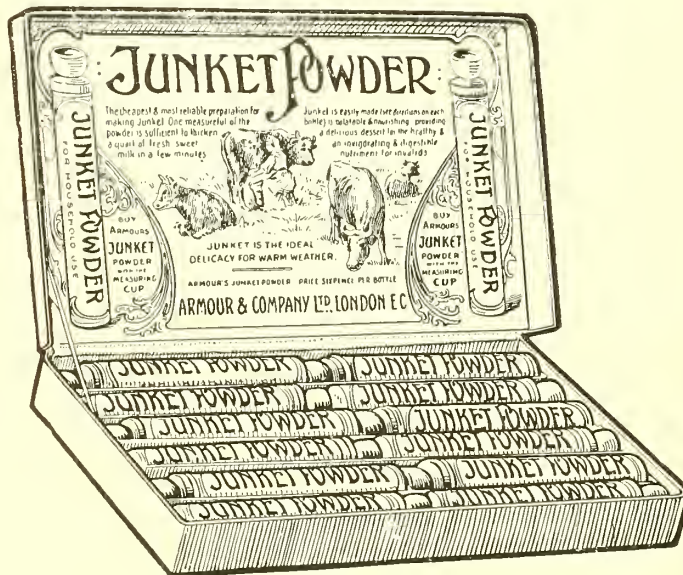 JUNKET POWDER
The cheapest & most reliable preparation for
making Junket. One measureful of the
powder is sufficient to thicken
a quart of fresh sweet
milk in a few minutes
Junket is easily made (see directions on each
bottle) is palatable & nourishing providing
a delicious dessert for the healthy &
an invigorating & digestible
nutriment for invalids
JUNKET POWDER
FOR HOUSEHOLD USE
BUY
ARMOURS
JUNKET
POWDER
WITH THE
MEASURING
CUP
JUNKET IS THE IDEAL
DELICACY FOR WARM WEATHER.
ARMOUR'S JUNKET POWDER PRICE SIXPENCE PER BOTTLE
ARMOUR & COMPANY LTD., LONDON E.C
BUY
ARMOURS
JUNKET
POWDER
WITH THE
MEASURING
CUP
JUNKET POWDER
FOR HOUSEHOLD USE
JUNKET POWDER JUNKET POWDER
JUNKET POWDER JUNKET POWDER
JUNKET POWDER JUNKET POWDER
JUNKET POWDER JUNKET POWDER
JUNKET POWDER JUNKET POWDER
JUNKET POWDER JUNKET POWDER